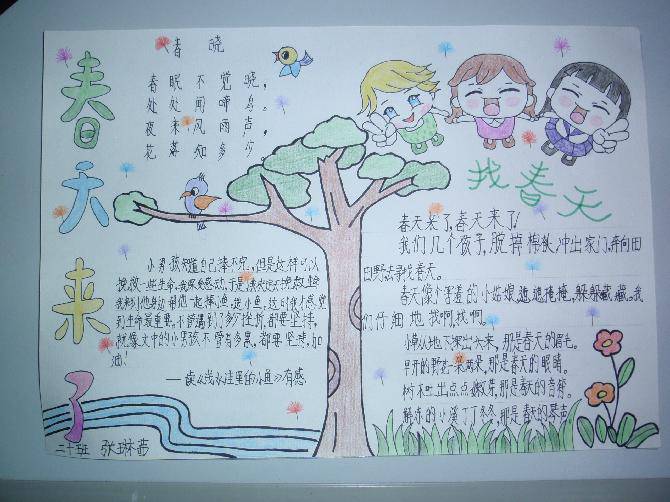 春天来了
春晓
春眠不觉晓，
处处闻啼鸟。
夜来风雨声，
花落知多少。
小男孩知道自己捧不完，但是这样可以
挽救一些生命。我很感动，于是
到生命最重要，不管遇到了多少挫折，都要坚持。
就像文中的小男孩不管有多累，都要坚持，加
油！
——读《浅水洼里的小鱼》有感
找春天
春天来了，春天来了！
我们几个孩子，脱掉棉袄，冲出家门，奔向田
田野去寻找春天。
春天像个害羞的小姑娘，遮遮掩掩，躲躲藏藏。我
们仔细地找啊，找啊。
小草从地下探出头来，那是春天的眉毛。
早开的野花一朵两朵，那是春天的眼睛。
树木吐出点点嫩芽，那是春天的音符。
解冻的小溪丁丁冬冬，那是春天的琴声